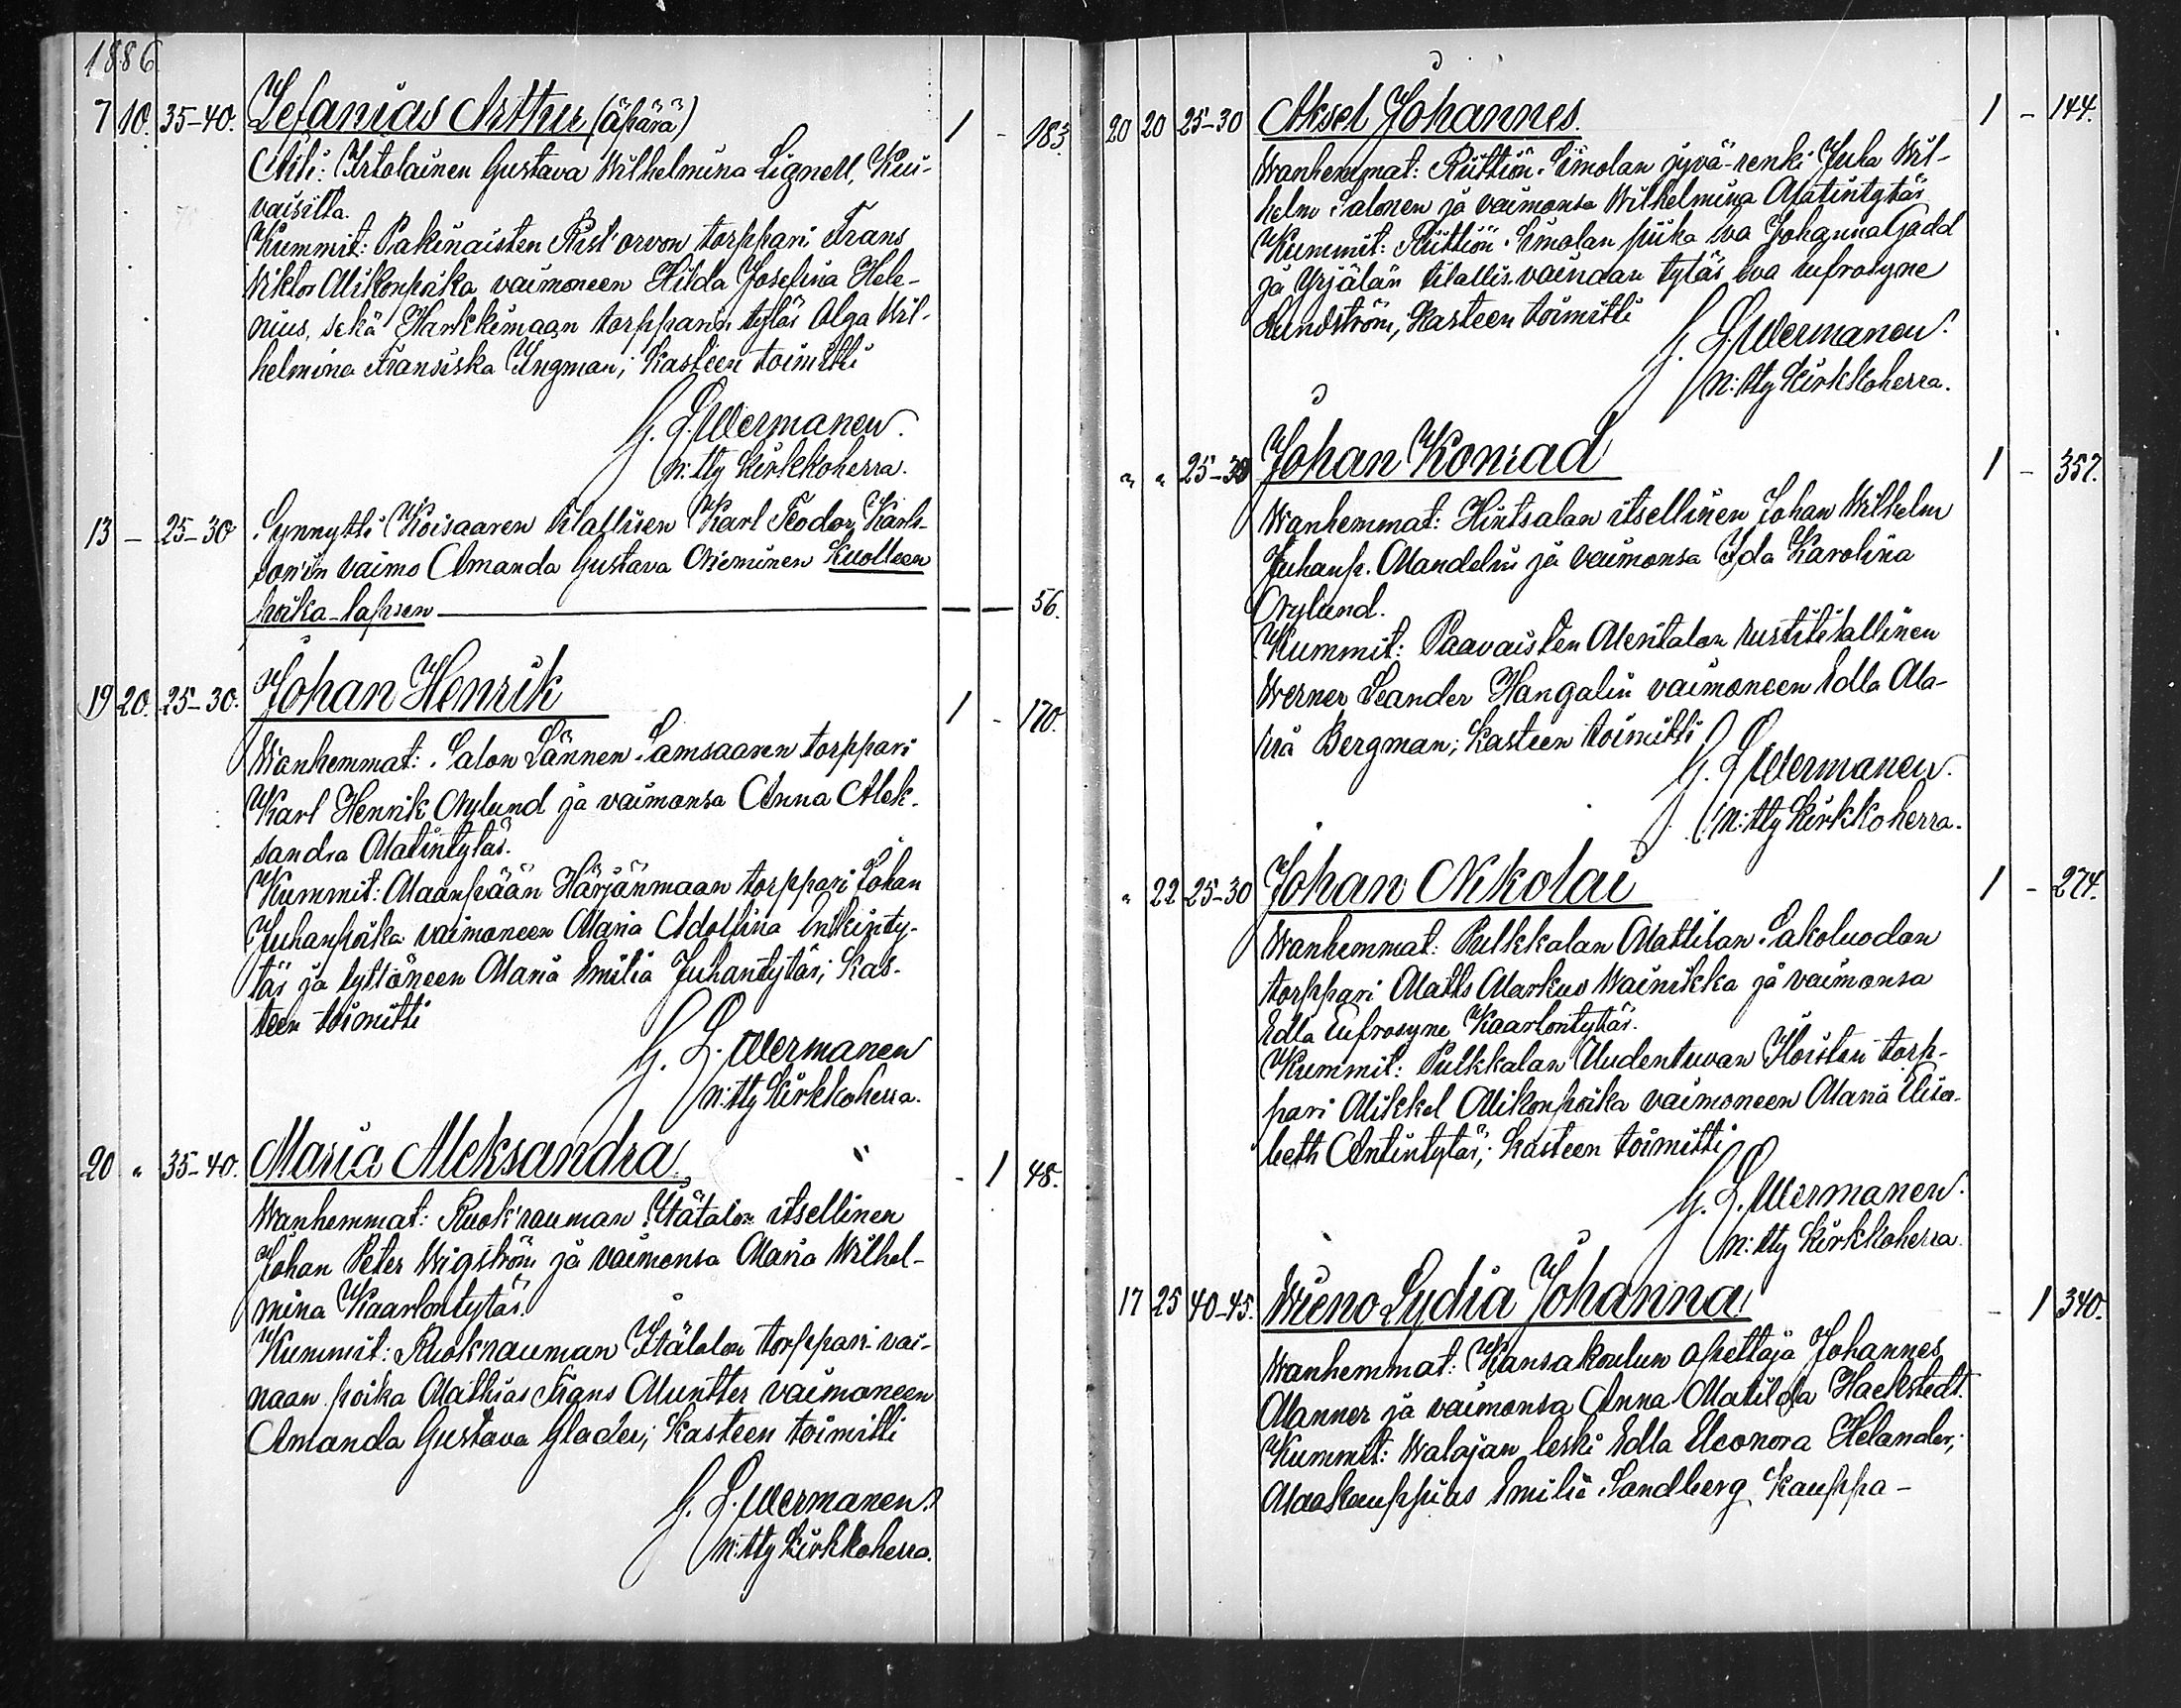 1886
7 10. 35-40. Sefanias Arthur (äpärä) 1 - 183.
Äiti: Irtolainen Gustava Wilhelmina Lignell, Kui-
vaisilta.
Kummit: Pakinaisten Rist'orvon torppari Frans
Viktor Mikonpoika vaimoneen Hilda Josefina Hele-
nius, sekä Harkkimaan torpparin tytär Olga Wil-
helmina Fransiska Ingman; Kasteen toimitti
G. L. Wermanen.
n:tty Kirkkoherra.
13 - 25-30 Synnytti Koisaaren tilallisen Karl Teodor Karls-
son'in vaimo Amanda Gustava Nieminen Kuolleen
poika-lapsen — — 56.
19 20. 25-30. Johan Henrik 1 - 170.
Wanhemmat: Salon Lännen Samsaaren torppari
Karl Henrik Nylund ja vaimonsa Anna Alek-
sandra Matintytär.
Kummit: Maanpään Härjänmaan torppari Johan
Juhanpoika vaimoneen Maria Adolfina Erikinty-
tär ja tyttöneen Maria Emilia Juhantytär; Kas-
teen toimitti
G. L. Wermanen
n:tty Kirkkoherra.
20 " 35-40. Maria Aleksandra. - 1 48.
Wanhemmat: Ruok'rauman Itätalon itsellinen
Johan Peter Wigström ja vaimonsa Maria Wilhel-
mina Kaarlontytär.
Kummit: Ruokrauman Itätalon torppari-vai-
naan poika Mathias Frans Muntter vaimoneen
Amanda Gustava Glader; Kasteen toimitti
G. L. Wermanen.
n:tty Kirkkoherra.
20 20 25-30 Aksel Johannes. 1 - 144.
Wanhemmat: Riittiön Simolan jyvä-renki Juha Wil-
helm Salonen ja vaimonsa Wilhelmina Matintytär
Kummit: Riittiön Simolan piika Eva Johanna Gadd
ja Yrjälän tilallis-vainaan tytär Eva Eufrosyne
Lundström; Kasteen toimitti
G. L. Wermanen.
n:tty Kirkkoherra.
" " 25-30 Johan Konrad 1 - 357.
Wanhemmat: Hintsalan itsellinen Johan Wilhelm
Juhanp. Mandelin ja vaimonsa Ida Karolina
Nylund.
Kummit: Paavaisten Meritalon rustitilallinen
Werner Leander Hangelin vaimoneen Edla Ma-
ria Bergman; Kasteen toimitti
G. L. Wermanen.
n:tty Kirkkoherra.
" 22 25-30 Johan Nikolai 1 - 274.
Wanhemmat: Pulkkalan Mattilan Sakoluodon
torppari Matts Markus Wainikka ja vaimonsa
Edla Eufrosyne Kaarlontytär.
Kummit: Pulkkalan Uudentuvan Hoisten torp-
pari Mikkel Mikonpoika vaimoneen Maria Elisa-
beth Antintytär; Kasteen toimitti
G. L. Wermanen.
n:tty Kirkkoherra.
17 25 40-45. Wieno Lydia Johanna. - 1 340.
Wanhemmat: Kansakoulun opettaja Johannes
Manner ja vaimonsa Anna Matilda Hackstedt.
Kummit: Walajan leski Edla Eleonora Helander;
Maakauppias Emilie Sandberg Kauppa-